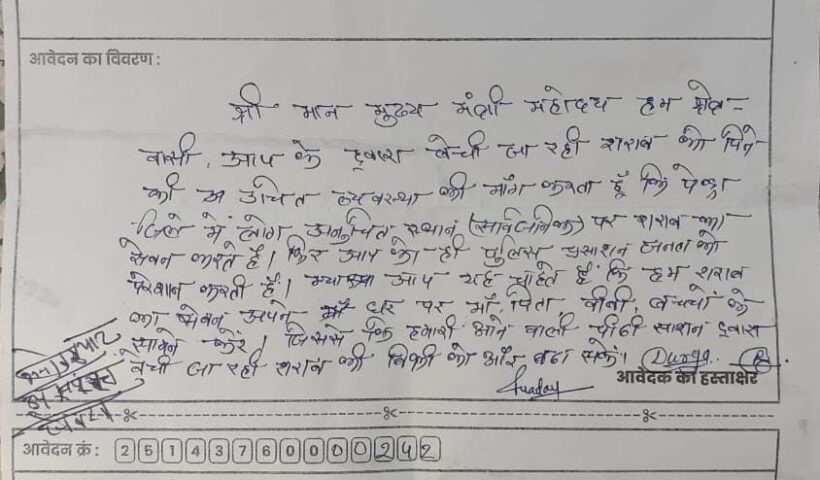 आवेदन का विवरण :
श्री मान मुख्य मंत्री महोदय हम क्षेत्र-
वासी, आप के द्वारा बेची जा रही शराब को पिने
की उचित व्यवस्था की माँग करता हूँ कि पेन्ड्रा
जिले में लोग अनुचित स्थान (सार्वजनिक) पर शराब का
सेवन करते है। फिर आप की ही पुलिस प्रसाशन जनता को
परेशान करती है। क्या आप यह चाहते हैं कि हम शराब
का सेवन अपने घर पर माँ पिता, बीबी, बच्चों के
सामने करें। जिससे कि हमारी आने वाली पीढी साशन द्वारा
बेची जा रही शराब की बिक्री को और बढा सकें।
आवेदक का हस्ताक्षर
आवेदन क्रं : 2 5 1 4 3 7 6 0 0 0 0 2 4 2